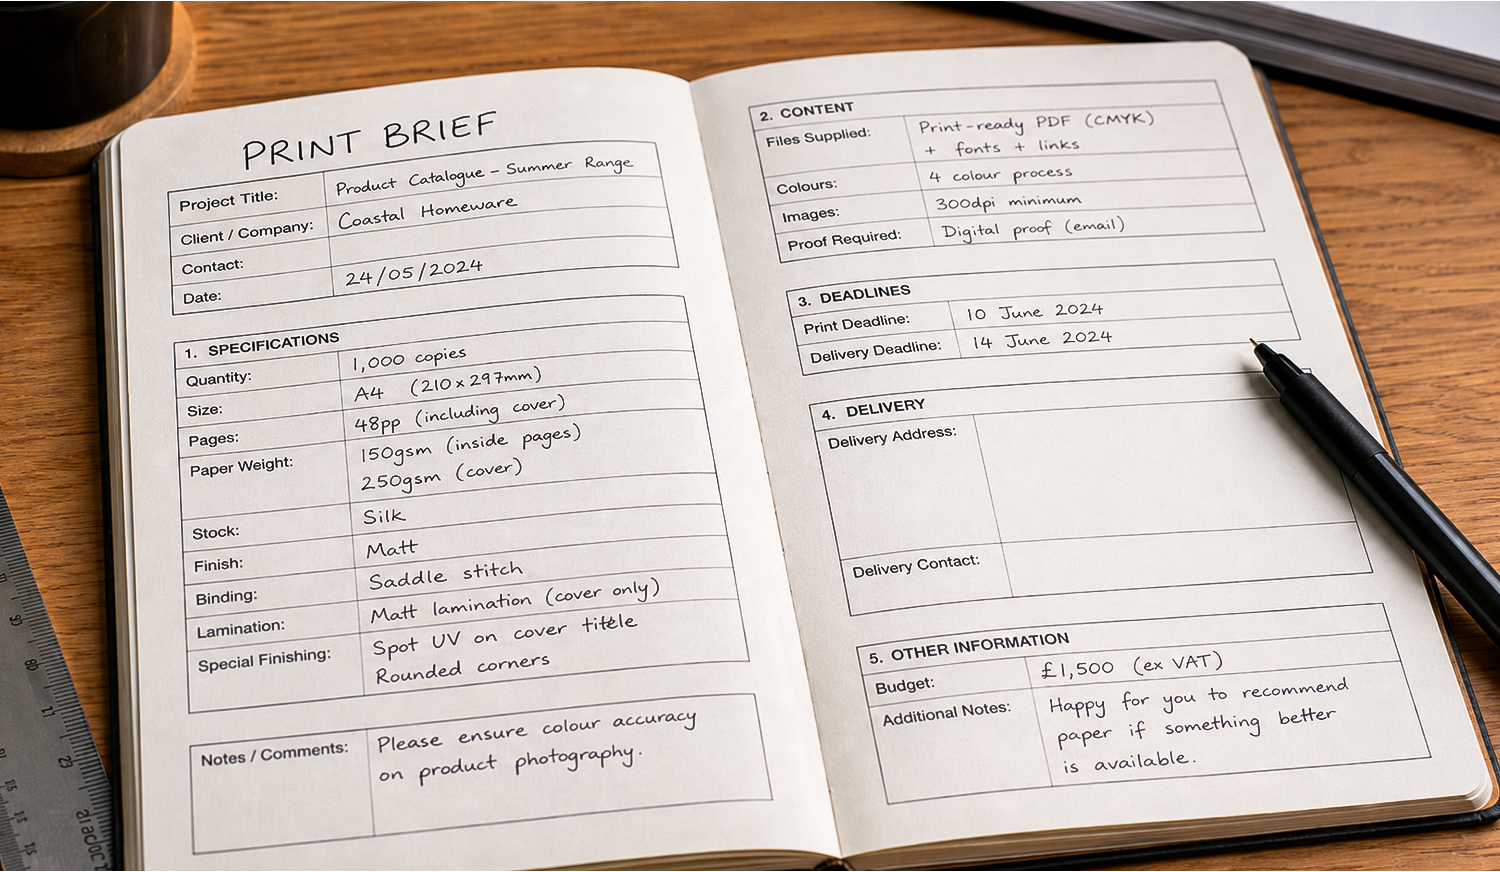 PRINT BRIEF
Project Title: Product Catalogue - Summer Range
Client / Company: Coastal Homeware
Contact:
Date: 24/05/2024
1. SPECIFICATIONS
Quantity: 1,000 copies
Size: A4 (210 x 297mm)
Pages: 48pp (including cover)
Paper Weight: 150gsm (inside pages)
250gsm (cover)
Stock: Silk
Finish: Matt
Binding: Saddle stitch
Lamination: Matt lamination (cover only)
Special Finishing: Spot UV on cover titele
Rounded corners
Notes / Comments: Please ensure colour accuracy
on product photography.
2. CONTENT
Files Supplied: Print-ready PDF (CMYK)
+ fonts + links
Colours: 4 colour process
Images: 300dpi minimum
Proof Required: Digital proof (email)
3. DEADLINES
Print Deadline: 10 June 2024
Delivery Deadline: 14 June 2024
4. DELIVERY
Delivery Address:
Delivery Contact:
5. OTHER INFORMATION
Budget: £1,500 (ex VAT)
Additional Notes: Happy for you to recommend
paper if something better
is available.